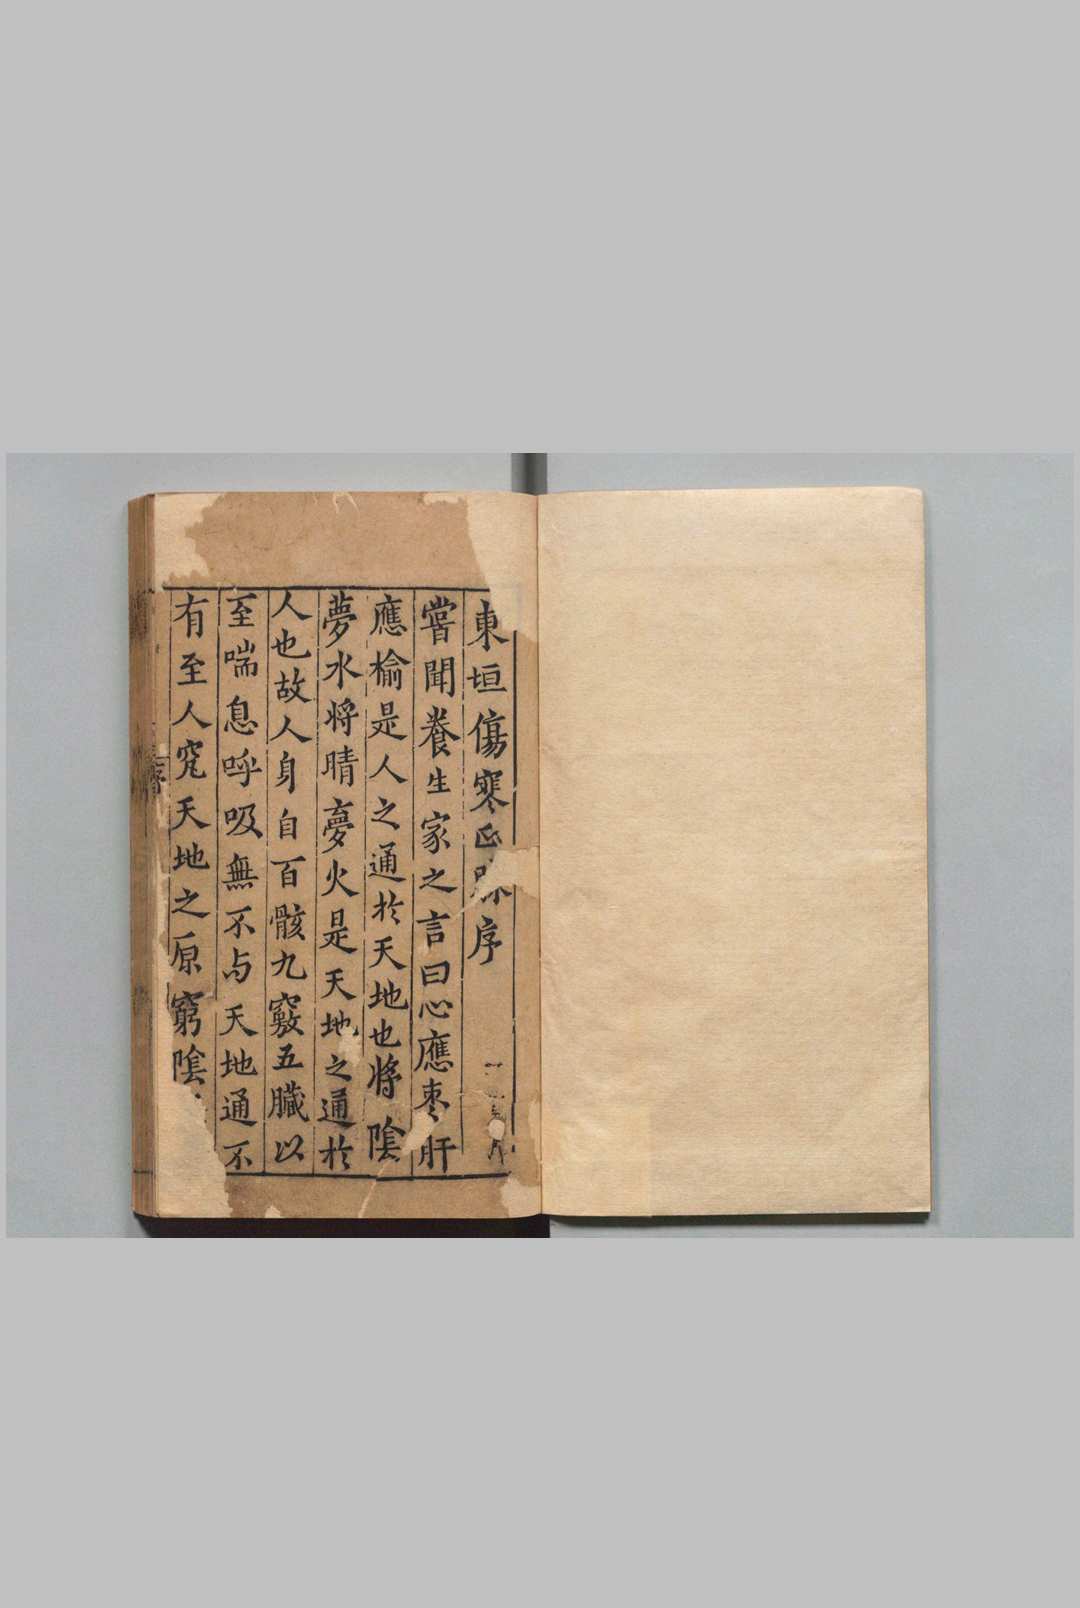 東垣傷寒正脉序
嘗聞養生家之言曰心應棗肝
應榆是人之通於天地也將陰
夢水將晴夢火是天地之通於
人也故人身自百骸九竅五臟以
至喘息呼吸無不与天地通不
有至人究天地之原窮陰
序